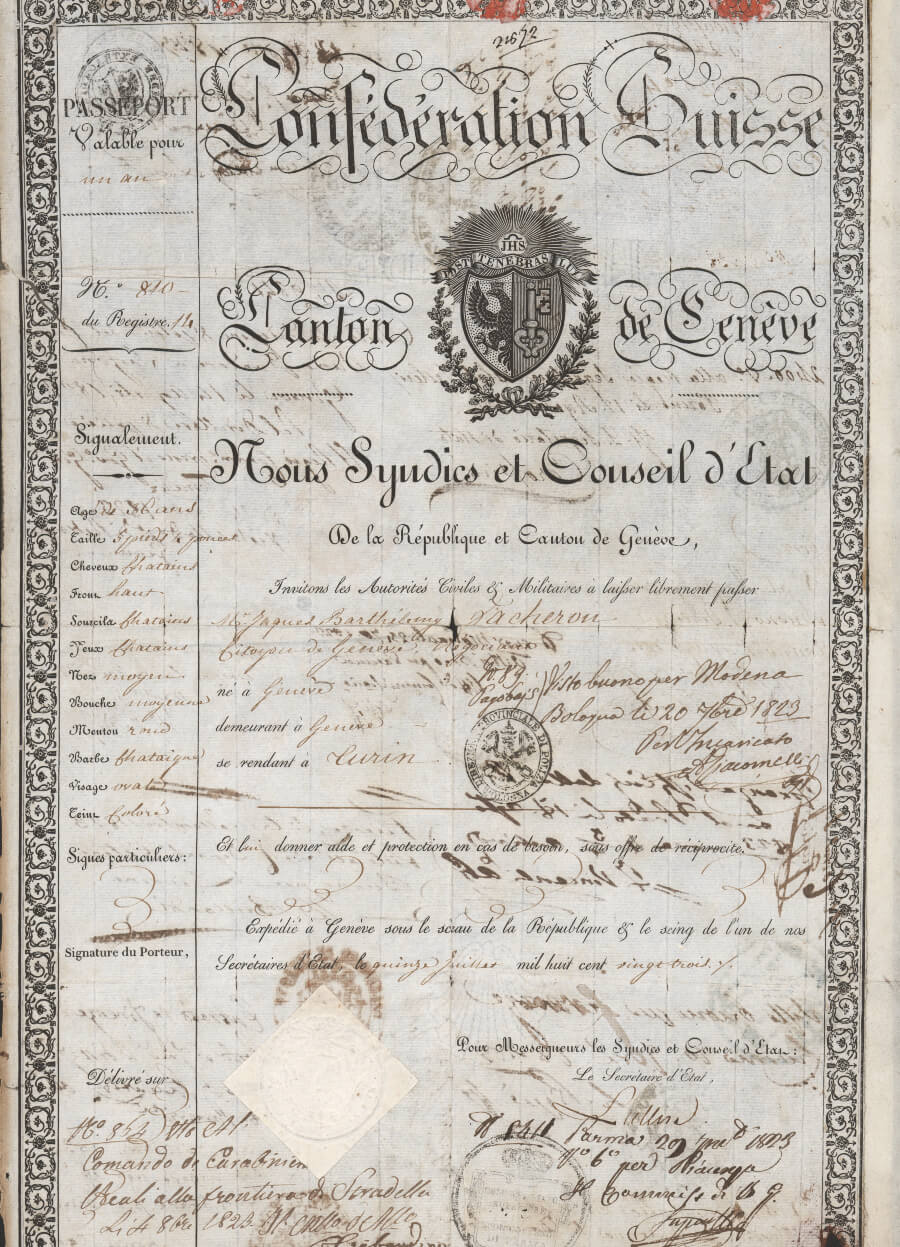 21672
PASSEPORT
Valable pour
un an
Confédération Suisse
JHS
POST TENEBRAS LUX
Canton de Genève
N.o 810
du Registre. 14
Signalement.
Age de 36 ans
Taille 5 pieds 4 pouces
Cheveux Chatains
Front haut
Sourcils Chatains
Yeux Chatains
Nez moyen
Bouche moyenne
Menton rond
Barbe Chataigne
Visage ovale
Teint Coloré
Signes particuliers:
Signature du Porteur,
Délivré sur
Nous Syndics et Conseil d'Etat
De la République et Canton de Genève,
Invitons les Autorités Civiles & Militaires à laisser librement passer
Mr. Jaques Barthélemy Vacheron
Citoyen de Genève, Négociant
né à Genève
demeurant à Genève
se rendant à Turin
Visto buono per Modena
Bologna li 20 7bre 1823
Per l'Incaricato
Giacomelli
Et lui donner aide et protection en cas de besoin, sous offre de réciprocité.
Expédié à Genève sous le sceau de la République & le seing de l'un de nos
Secrétaires d'Etat, le quinze Juillet mil huit cent vingt trois.
Pour Messeigneurs les Syndics et Conseil d'Etat:
Le Secrétaire d'Etat,
Comando de Carabinieri
Reali alla frontiera di Stradella
Li 4 8bre 1823
Parma 29 1823
per Piacenza